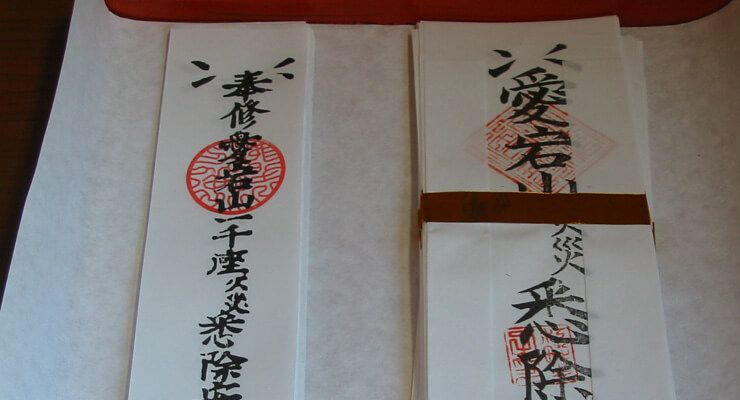 愛宕山火災悉除
奉修愛宕山一千座火災悉除